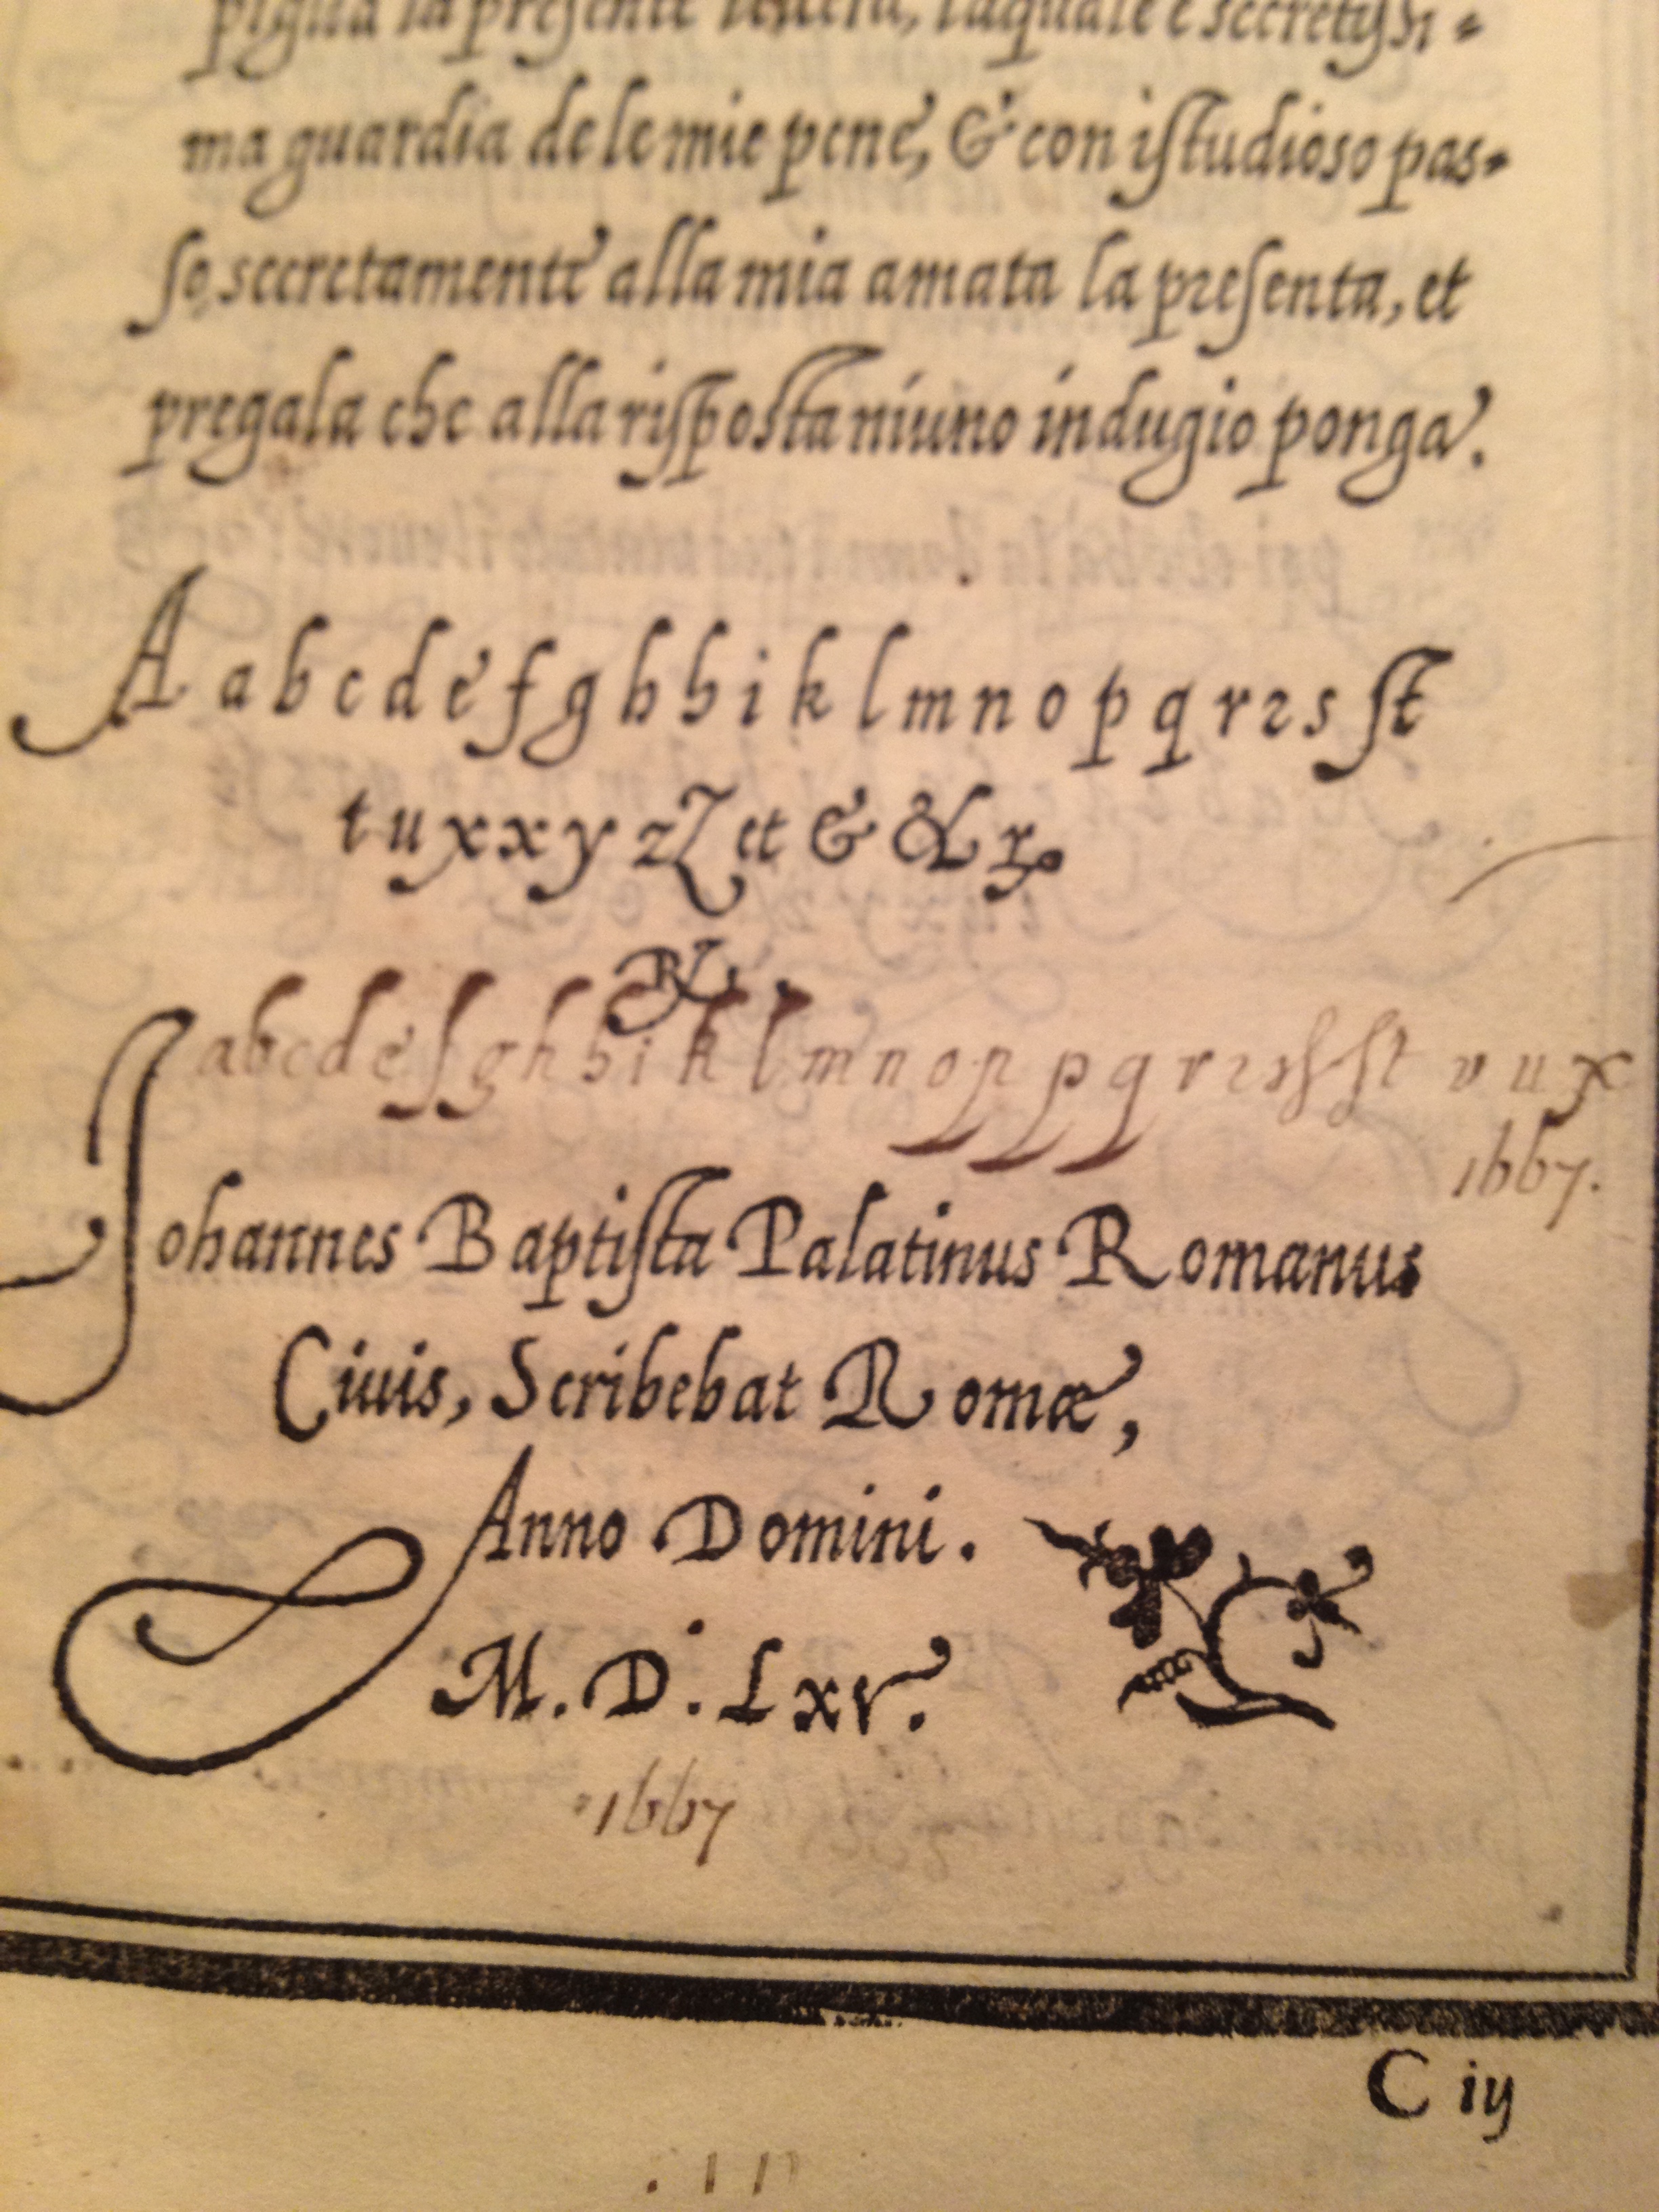 piglia la presente lettera, laquale e secretissi-
ma guardia de le mie pene, & con istudioso pas-
so, secretamente alla mia amata la presenta, et
pregala che alla risposta niuno indugio ponga.
A a b c d e f g h h i k l m n o p q r ꝛ s st
t u x x y z Z et & &
a b c d e f g h h i k l m n o p p p q r ꝛ s s st v u x
1667.
Johannes Baptista Palatinus Romanus
Ciuis, Scribebat Romæ,
Anno Domini.
M. D. Lxv.
1667
C iij